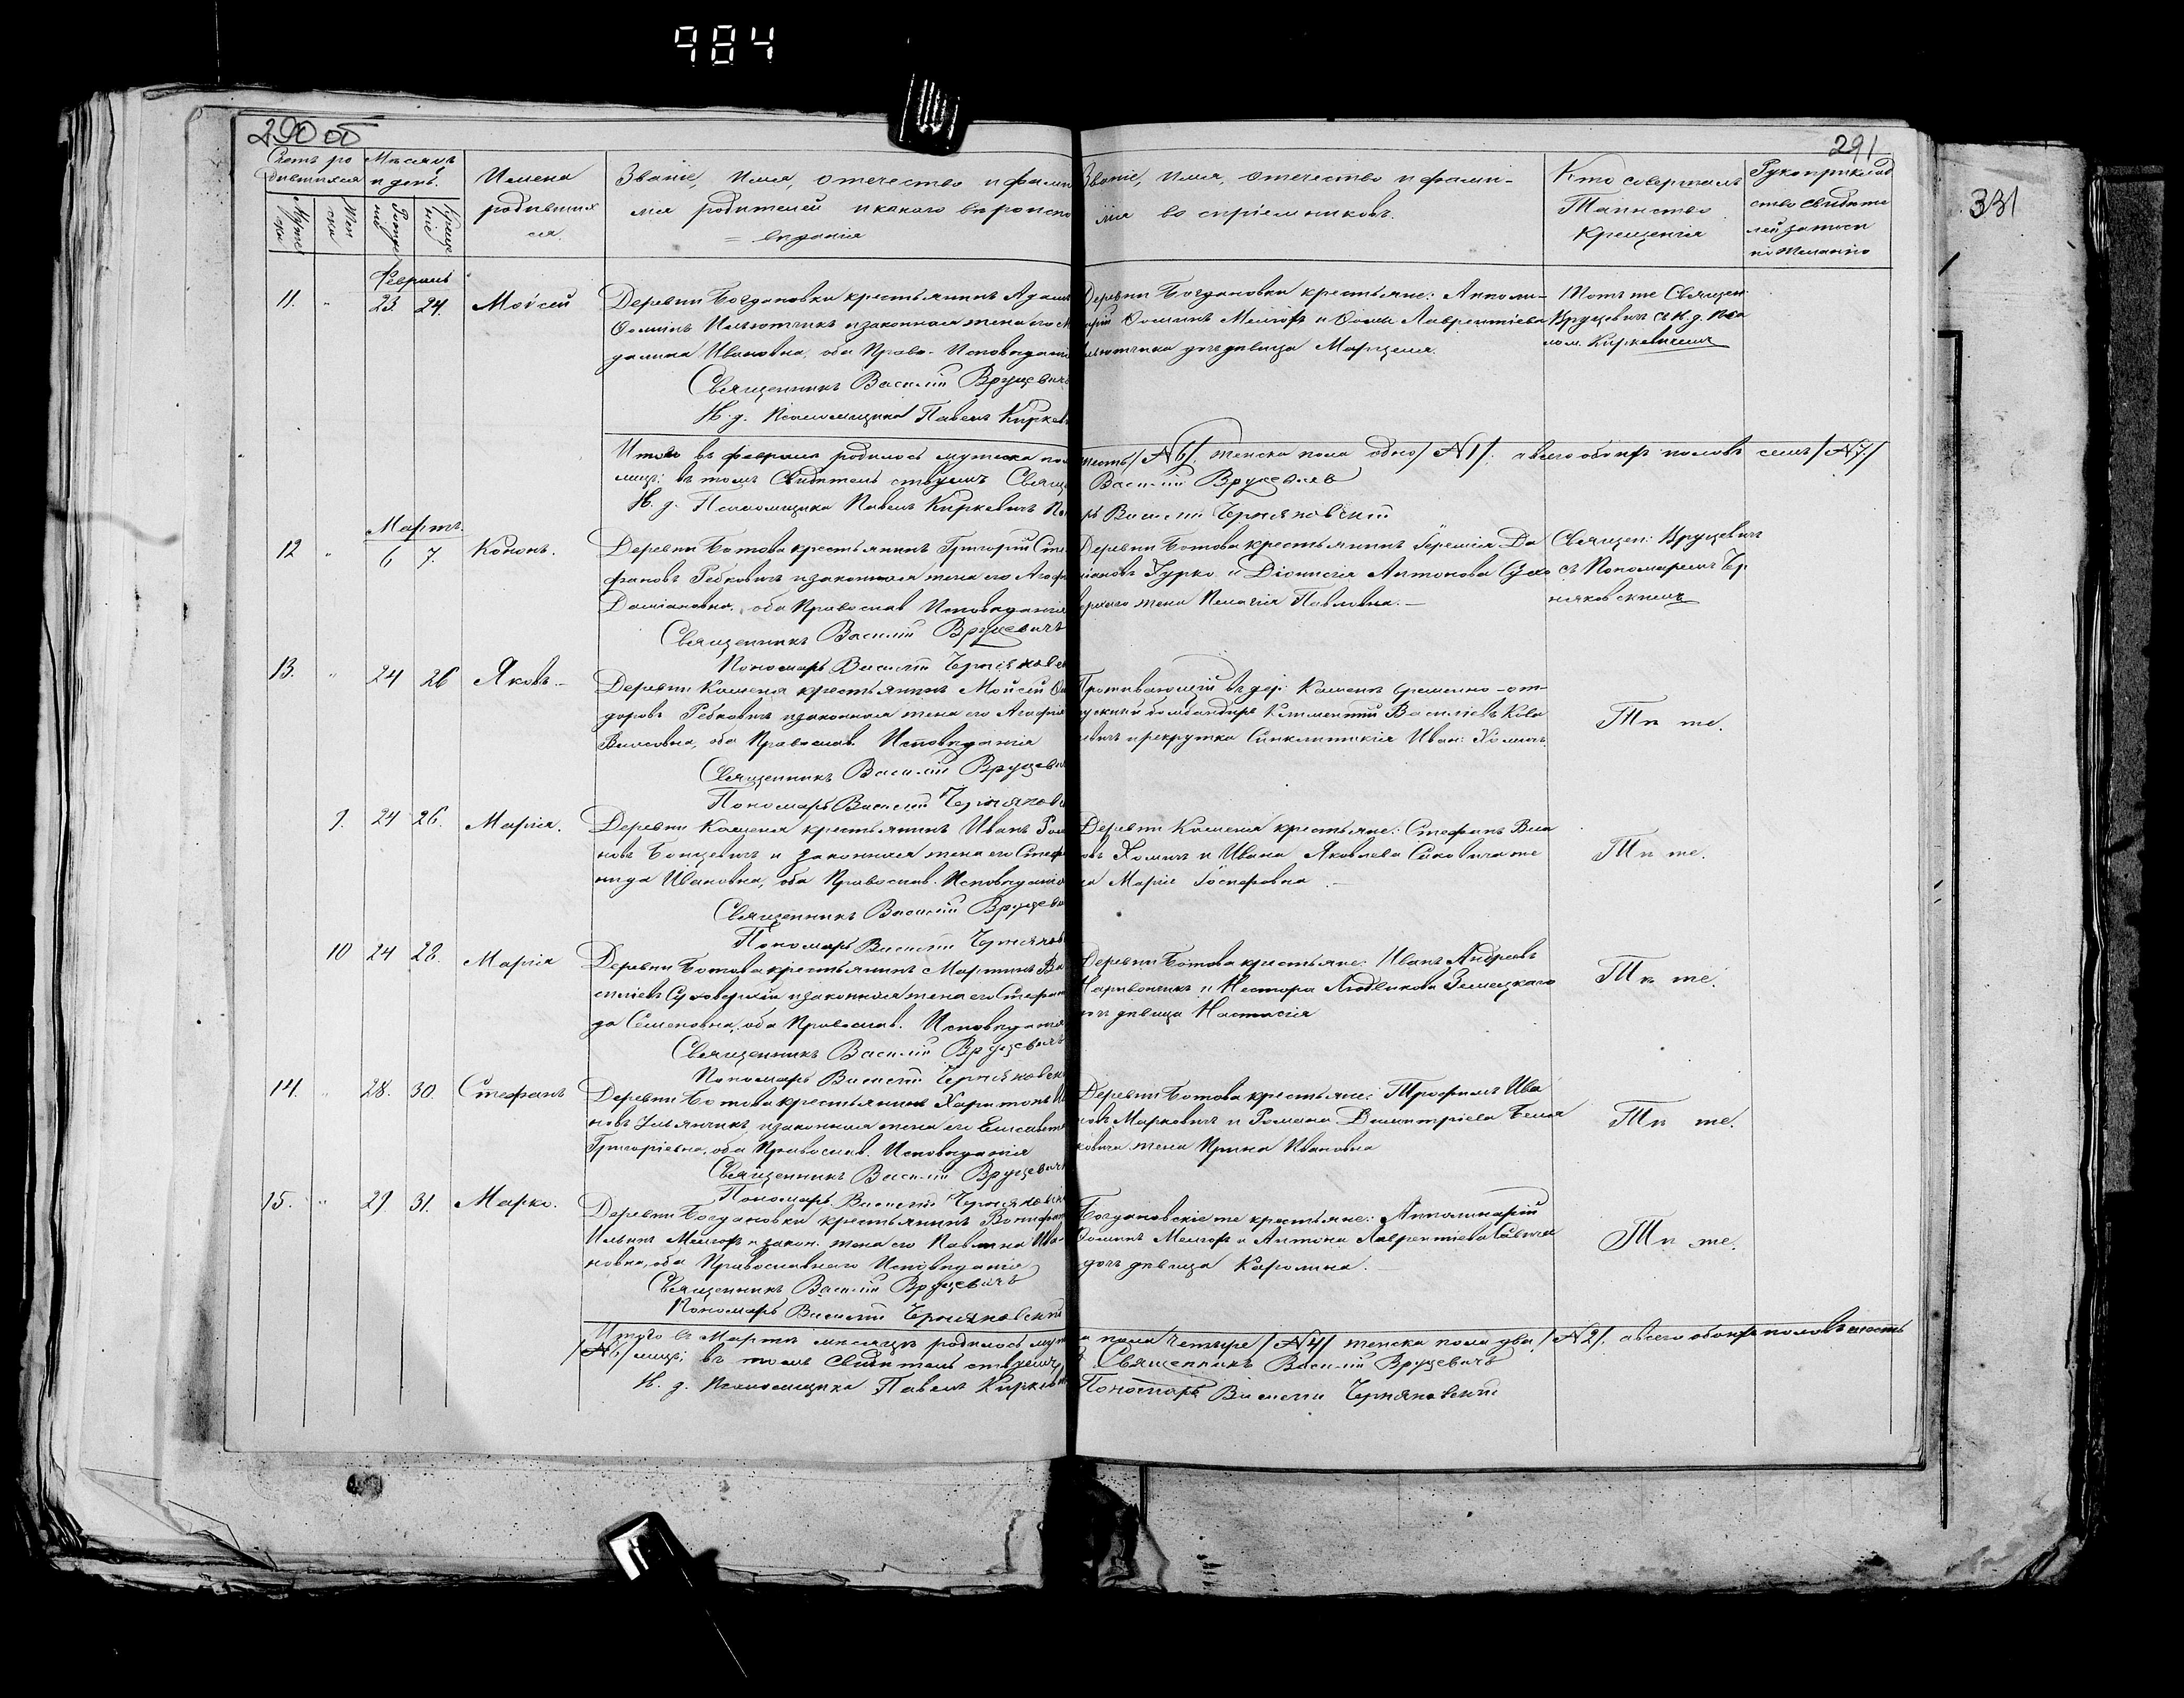 984
290 об
291
331
Счетъ ро
дившихся
Мужес
ка
Жен
ска
Мѣсяцъ
и день.
Рожде
ніе
Креще
ніе
Имена
родивших
ся.
Званіе, Имя, отечество и фами
лія родителей и какого вѣроиспо
= вѣданія
Званіе, Имя, отечество и фами-
лія воспріемниковъ.
Кто совершалъ
Таинство
Крещенія
Рукоприклад
ство свидѣте
лей записи
по желанію
Февраль
11. " 23. 24. Моѵсей
Деревни Богдановки крестьянинъ Адамъ
Ѳоминъ и законная жена его М
далина Ивановна, оба Право- Исповѣданія
Священникъ Василій Вруцевичъ
И. д. Псаломщика Павелъ Киркев
Деревни Богдановки крестьяне: Апполи-
арій Ѳоминъ Мелгоръ и Ѳомы Лаврентіева
дочь дѣвица Марцеля.
Тотъ же Священ:
Вруцевичъ съ И. д. Пса
лом. Киркевичемъ
Итого въ февралѣ родилось мужеска по
лицъ; въ томъ свидѣтельствуемъ Свящ
И. д. Псаломщика Павелъ Киркевичъ По
шесть /№ 6/, женска пола одно /№ 1/, а всего обоихъ половъ семь /№ 7/
Василій Вруцевичъ
рь Василій Черняковскій
Мартъ.
12 " 6 7. Кононъ.
Деревни Ботова крестьянинъ Григорій Сте
фановъ Ребковичъ и законная жена его Агаф
Даміановна, оба Православ Исповѣданія
Священникъ Василій Вруцевичъ
Пономарь Василій Черняковс
Деревни Ботова крестьянинъ Іеремія Да
міановъ Гурко и Діонисія Антонова Сухо
верхаго жена Пелагія Павловна. —
Священ: Вруцевичъ
съ Пономаремъ Чер
няковскимъ
13. " 24 26 Яковъ. —
Деревни Каменя крестьянинъ Мойсей Ѳе
доровъ Ребковичъ и законная жена его Агафія
оба Православ. Исповѣданія
Священникъ Василій Вруцеви
Пономарь Василій Черняковс
Проживающій въ дер: Каменѣ временно-от-
пускный бомбандиръ Климентій Василіевъ Кова
левичъ и рекрутка Синклитикія Иван: Хомичъ.
Тѣ же.
9. 24 26. Марія.
Деревни Каменя крестьянинъ Иванъ Рома
новъ и законная жена его Стефа
нида Ивановна, оба Православ. Исповѣданія
Священникъ Василій Вруцеви
Пономарь Василій Черняков
Деревни Каменя крестьяне: Стефанъ Вла
овъ Хомичъ и Ивана Яковлева Саковича же
на Марія Іосифовна. —
Тѣ же.
10 24 28. Марія
Деревни Ботова крестьянинъ Мартинъ Ва
силіевъ Суховерхій и законная жена его Стефани
да Семеновна, оба Православ. Исповѣданія
Священникъ Василій Вруцевичъ
Пономарь Василій Черняковск
Деревни Ботова крестьяне: Иванъ Андреевъ
и Нестора Людвикова Земецкаго
дочь дѣвица Настасія
Тѣ же.
14. " 28. 30. Стефанъ
Деревни Ботова крестьянинъ Харитонъ Ив
новъ Ульянчикъ и законная жена его Елисавета
Григоріевна, оба Православ. Исповѣданія
Священникъ Василій Вруцевичъ
Пономарь Василій Черняковск
Деревни Ботова крестьяне: Трофимъ Ива
новъ Марковичъ и Романа Димитріева Беля
ковича жена Ирина Ивановна
Тѣ же.
15. " 29. 31. Марко.
Деревни Богдановки крестьянинъ Вонифат
Ильинъ Мелгоръ и закон. жена его Павлина Ива-
новна, оба Православнаго Исповѣданія
Священникъ Василій Вруцевичъ
Пономарь Василій Черняковскій
Богдановскіе же крестьяне: Апполинарій
Ѳоминъ Мелгоръ и Антона Лаврентіева Савича
дочь дѣвица Каролина. —
Тѣ же.
Итого въ Мартѣ мѣсяцѣ родилось муж
/№ 6/ лицъ; въ томъ свидѣтельствуемъ
И. д. Псаломщика Павелъ Киркев
а пола четыре /№ 4/ женска пола два /№ 2/. а всего обоихъ половъ шесть
Священникъ Василій Вруцевичъ
Пономарь Василій Черняковскій